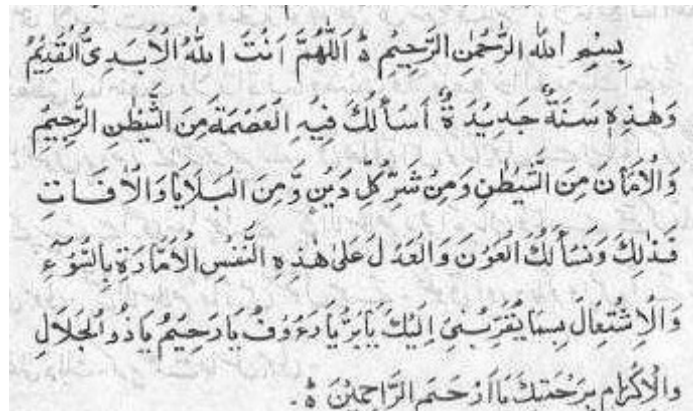 بِسْمِ اللهِ الرَّحْمٰنِ الرَّحِيْمِ ۀ اَللّٰهُمَّ اَنْتَ اللهُ الْاَبَدِىُّ الْقَدِيْمُ
وَهٰذِهٖ سَنَةٌ جَدِيْدَةٌ اَسْأَلُكَ فِيْهِ الْعَصْمَةَ مِنَ الشَّيْطٰنِ الرَّجِيْمِ
وَالْاَمَانَ مِنَ الشَّيْطٰنِ وَمِنْ شَرِّ كُلِّ دَيْنٍ وَّمِنَ الْبَلَايَا وَالْاٰفَاتِ
فَذٰلِكَ وَنَسْأَلُكَ الْعَوْنَ وَالْعَدْلَ عَلٰى هٰذِهِ النَّفْسِ الْاَمَّارَةِ بِالسُّوْٓءِ
وَالْاِشْتِعَالَ بِمَا يُقَرِّبُنِىْ اِلَيْكَ يَا بَرُّ يَا رَءُوْفُ يَا رَحِيْمُ يَا ذُوالْجَلَالِ
وَالْاِكْرَامِ بِرَحْمَتِكَ يَا اَرْحَمَ الرَّاحِمِيْنَ ۀ۔